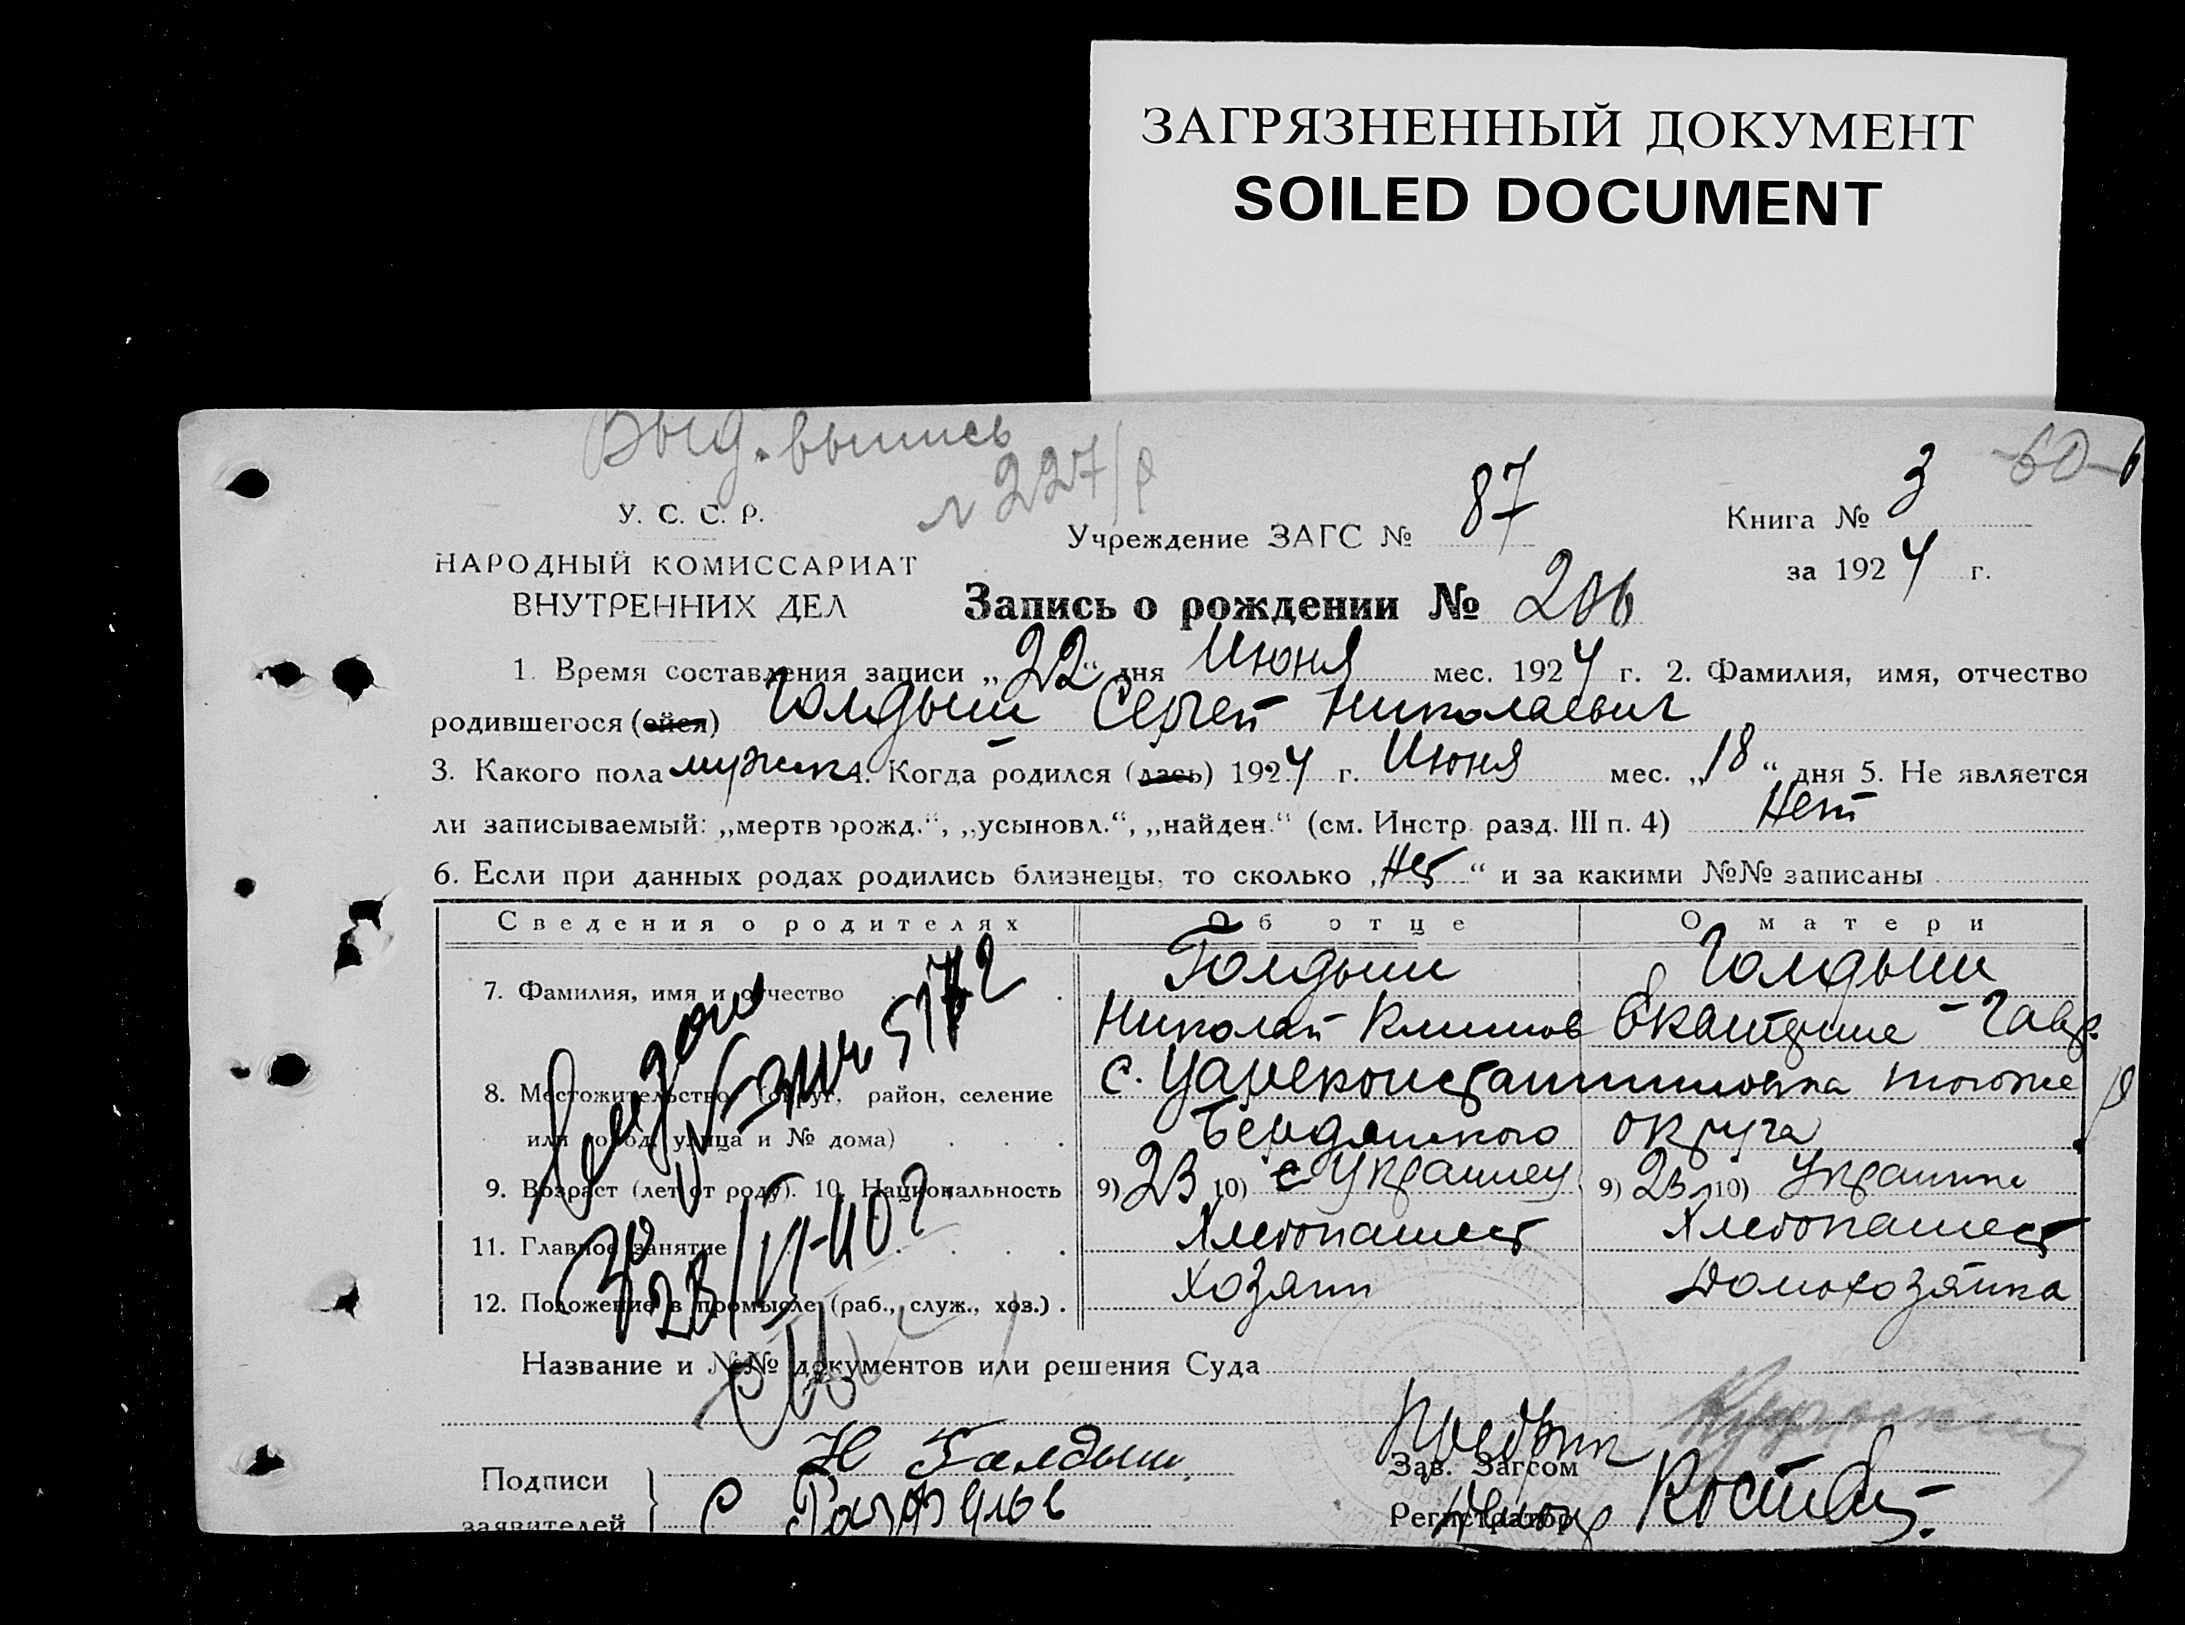 ЗАГРЯЗНЕННЫЙ ДОКУМЕНТ
SOILED DOCUMENT
Выд. выпись
№ 227/
-60-
У. С. С. Р.
НАРОДНЫЙ КОМИССАРИАТ
ВНУТРЕННИХ ДЕЛ
Учреждение ЗАГС № 87
Книга № 3
за 1924 г.
Запись о рождении № 206
1. Время составления записи „22“ дня Июня мес. 1924 г. 2. Фамилия, имя, отчество
родившегося (ойся) Голдыш Сергей Николаевич
3. Какого пола мужск 4. Когда родился (лась) 1924 г. Июня мес. „18“ дня 5. Не является
ли записываемый: „мертворожд.“, „усыновл.“, „найден.“ (см. Инстр. разд. III п. 4) Нет
6. Если при данных родах родились близнецы, то сколько „Нет“ и за какими №№ записаны
Сведения о родителях Об отце О матери
7. Фамилия, имя и отчество Голдыш Голдыш
Николай Климов Екатерине Гавр
8. Местожительство (округ, район, селение с. Цареконстантиновка тоже
или город, улица и № дома) Бердянского округа
9. Возраст (лет от роду). 10. Национальность 9) 23 10) Украинец 9) 23 10) Украинк
11. Главное занятие Хлебопашест Хлебопашест
12. Положение в промысле (раб., служ., хоз.) Хозяин Домохозяйка
Название и №№ документов или решения Суда
Подписи
заявителей
Н Галдыш
С
Зав. Загсом
Регистратор